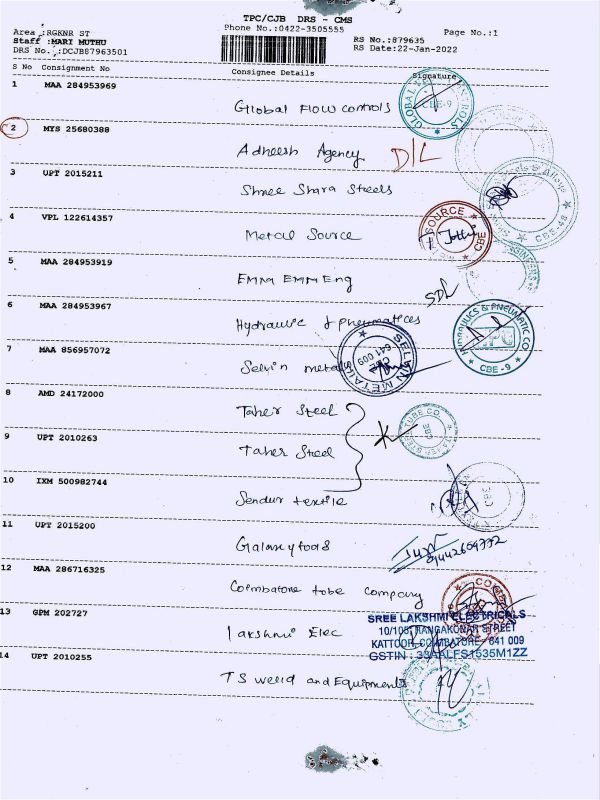 TPC/CJB DRS - CMS
Phone No.:0422-3505555
Page No.:1
Area :RGKNR ST
Staff :MARI MUTHU
DRS No. :DCJB87963501
RS No.:879635
RS Date:22-Jan-2022
S No Consignment No Consignee Details Signature
1 MAA 284953969 Global Flow controls
GLOBAL CBE-9
2 MYS 25680388 Adheesh Agency D/L
3 UPT 2015211 Shree Shara Steels
CBE-48
4 VPL 122614357 Metal Source
SOURCE CBE
5 MAA 284953919 EMM EMM Eng
6 MAA 284953967 Hydraulic & pneumatics
HYDRAULICS & PNEUMATIC CO HPC CBE-9
7 MAA 856957072 Selvin metals
SELVIN METALS CBE 641 009
8 AMD 24172000 Taher Steel
CBE
9 UPT 2010263 Taher Steel
10 IXM 500982744 Sendur textile
CBE
11 UPT 2015200 Galaxy tools
9442609772
12 MAA 286716325 Coimbatore tube company
13 GPM 202727 lakshmi Elec
SREE LAKSHMI ELECTRICALS
10/105, RANGAKONAR STREET
KATTOOR, COIMBATORE - 641 009
GSTIN : 33AALFS1535M1ZZ
14 UPT 2010255 TS weld and Equipments